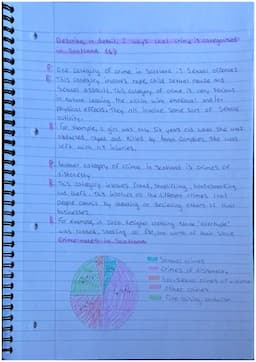 Describe, in detail, 2 ways that crime is categorised
in Scotland (4)
P: One category of crime in Scotland is sexual offences
E: This category involves rape, child sexual abuse and
sexual assault. This category of crime is very
in nature leaving the victim with emotional and/or
physical effects. They all involve some sort of sexual
activity.
E: For example, a girl was only six years old when she was
abducted, raped and killed by She was
left with 117 injuries.
P: Another category of crime in Scotland is crimes of
dishonesty.
E: This category involves fraud, shoplifting, housebreaking
and theft. This involves all the different crimes that
people commit by cheating or deceiving others or
businesses.
E: For example, a designer clothing store
was robbed, stealing of worth of their stock
Crime rates in Scotland
Sexual crimes
Crimes of dishonesty
Non-sexual crimes of violence
Other crimes